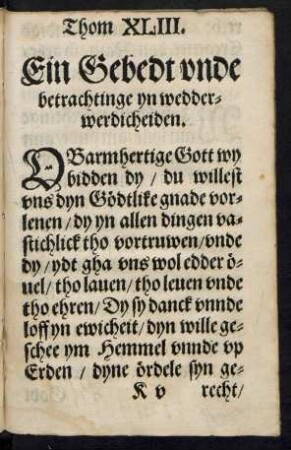 Thom XLIII.
Ein Gebedt vnde
betrachtinge yn wedder-
werdicheiden.
O Barmhertige Gott wy
bidden dy / du willest
vns dyn Gödtlike gnade vor-
lenen / dy yn allen dingen va-
stichlick tho vortruwen / vnde
dy / ydt gha vns wol edder ö-
uel / tho lauen / tho leuen vnde
tho ehren / Dy sy danck vnnde
loff yn ewicheit / dyn wille ge-
schee ym Hemmel vnnde vp
Erden / dyne ördele syn ge-
K v recht /